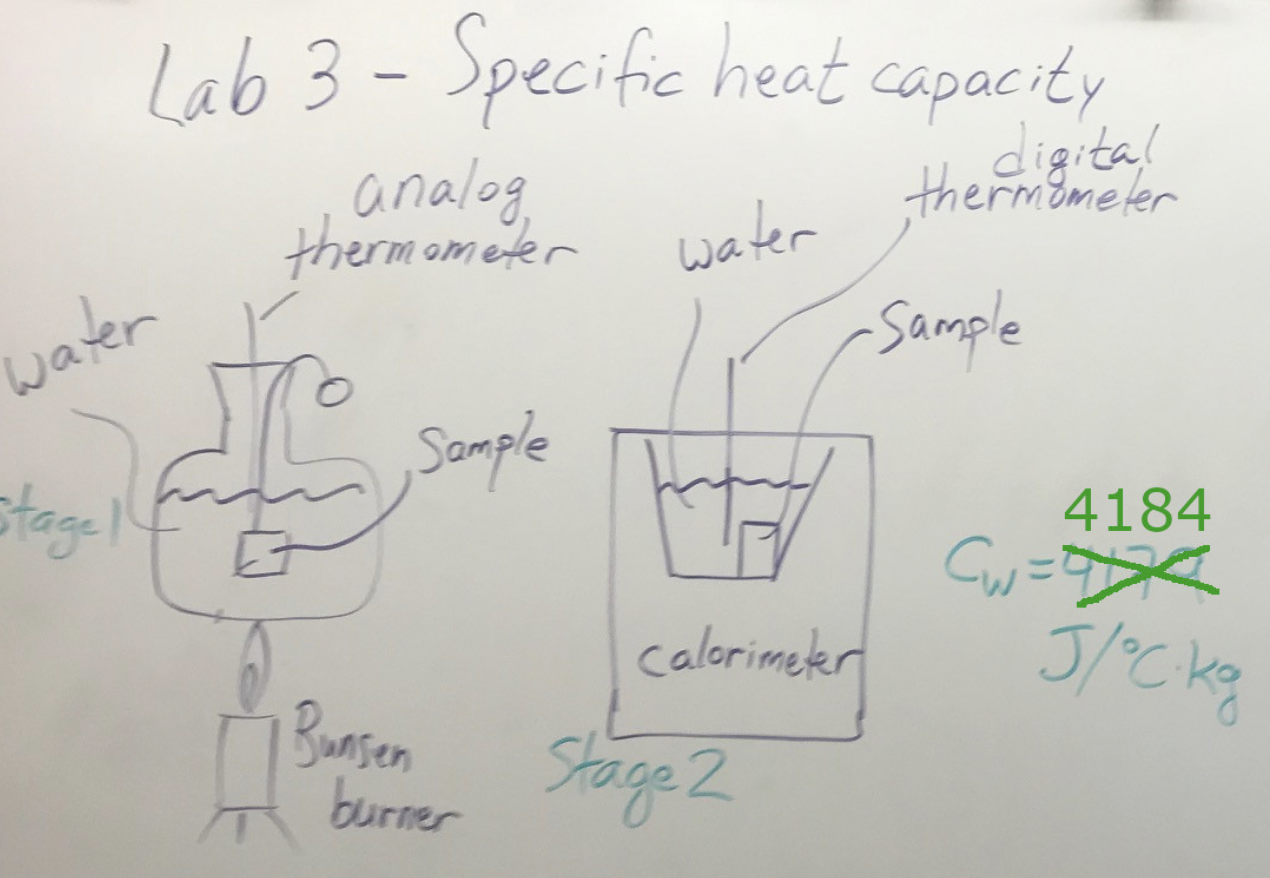 Lab 3 - Specific heat capacity
analog
thermometer
water
Sample
Stage 1
Bunsen
burner
digital
thermometer
water
Sample
calorimeter
Stage 2
4184
Cw = 4179
J/°C·kg